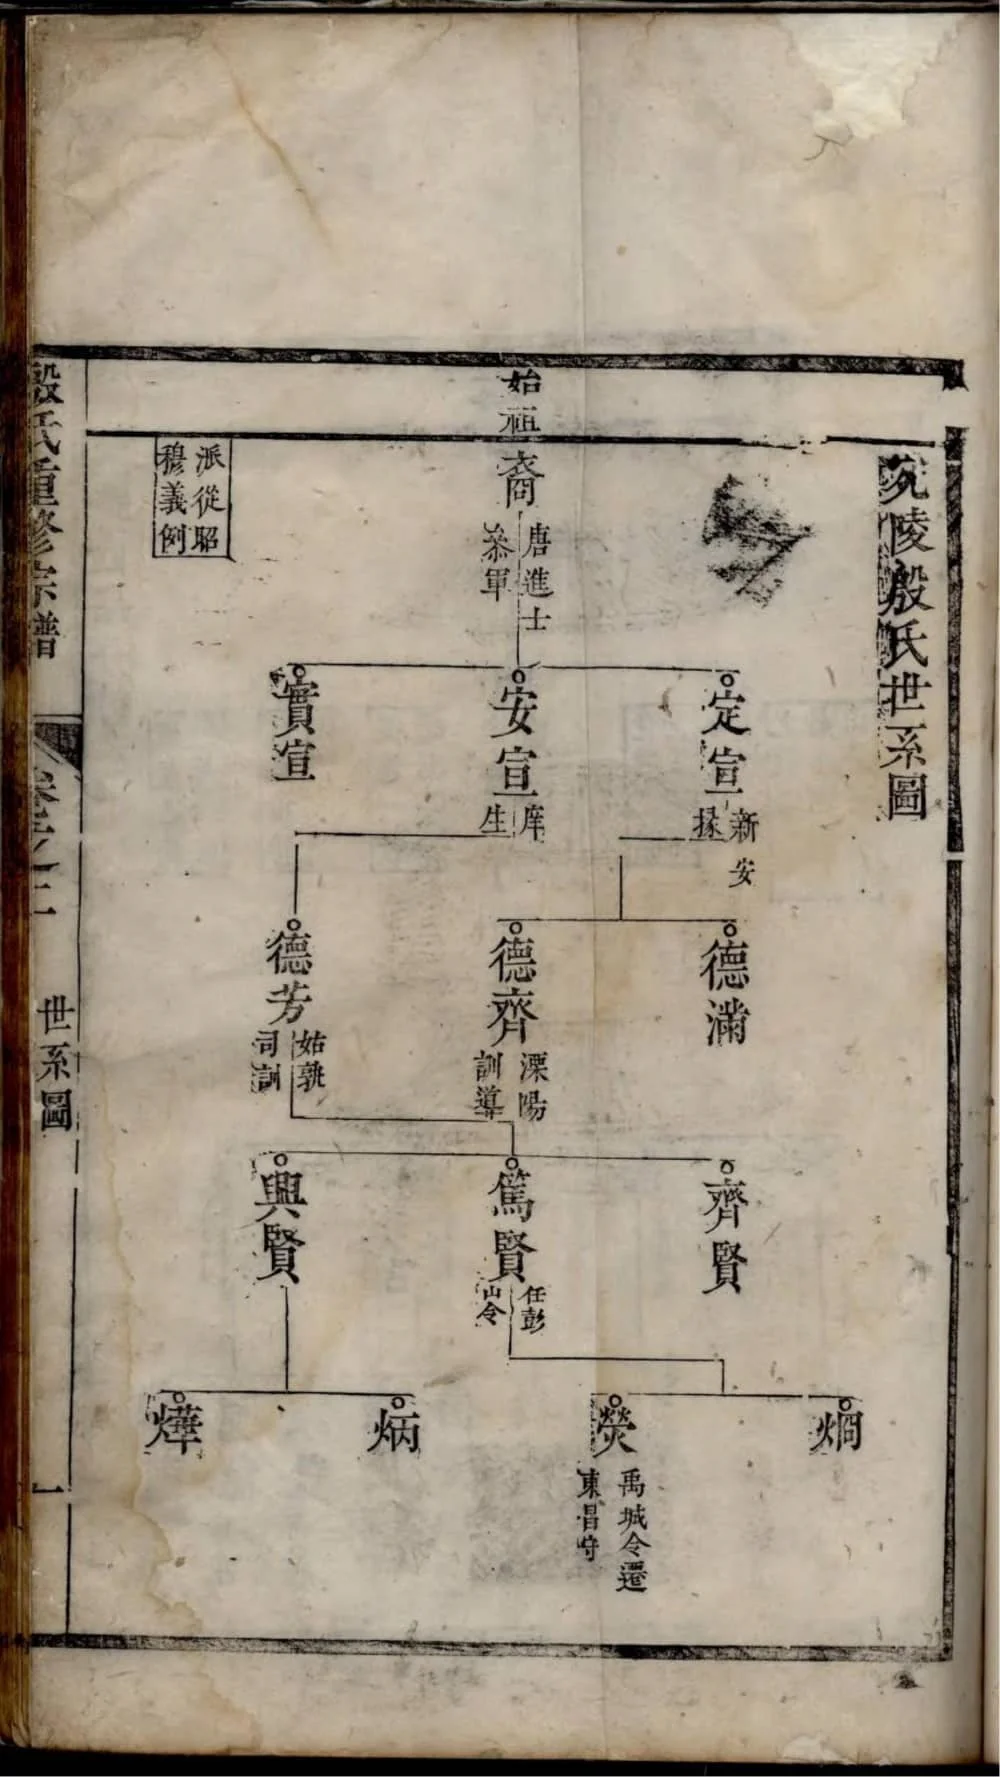 宛陵殷氏世系圖
始祖
裔
唐進士
叅軍
定宣
新安
掾
安宣
庠
生
實宣
德滿
德齊
溧陽
訓導
德芳
姑孰
司訓
齊賢
篤賢
任彭
山令
興賢
烱
熒
禹城令遷
東昌守
炳
燁
派從昭
穆義例
殷氏重修宗譜
卷之二
世系圖
一